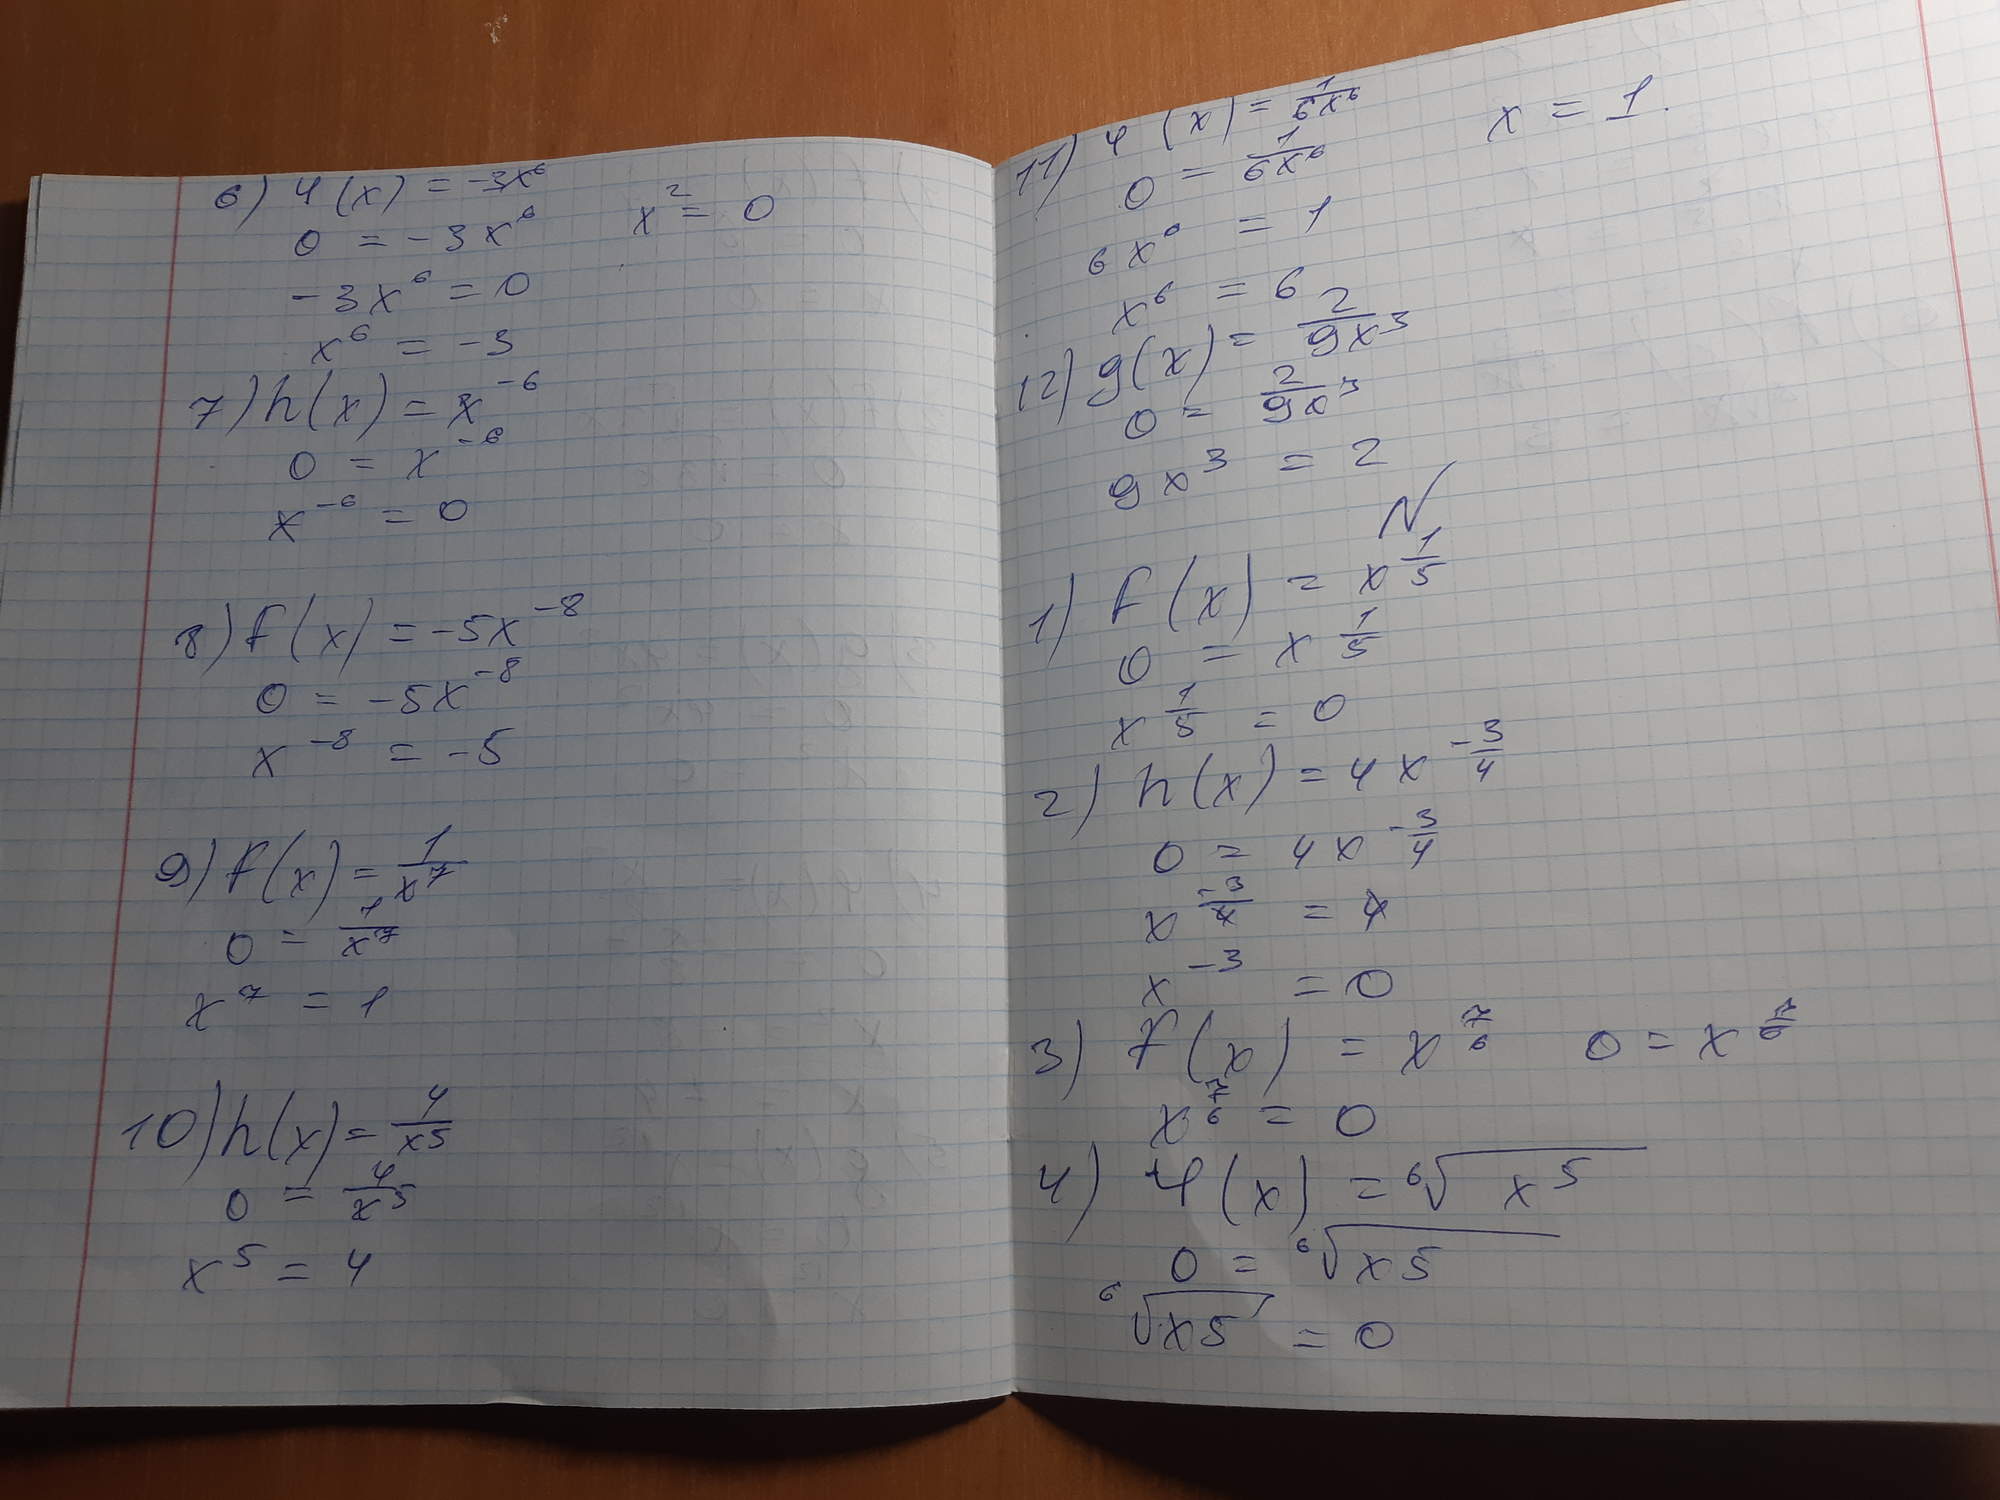 6) φ(x) = -3x⁶
0 = -3x⁶
x² = 0
-3x⁶ = 0
x⁶ = -3
7) h(x) = x⁻⁶
0 = x⁻⁶
x⁻⁶ = 0
8) f(x) = -5x⁻⁸
0 = -5x⁻⁸
x⁻⁸ = -5
9) f(x) = 1/x⁷
0 = 1/x⁷
x⁷ = 1
10) h(x) = 4/x⁵
0 = 4/x⁵
x⁵ = 4
11) φ(x) = 1/6x⁶
x = 1.
0 = 1/6x⁶
6x⁶ = 1
x⁶ = 6
12) g(x) = 2/9x³
0 = 2/9x³
9x³ = 2
N
1) f(x) = x^1/5
0 = x^1/5
x^1/5 = 0
2) h(x) = 4x^-3/4
0 = 4x^-3/4
x^-3/4 = 4
x⁻³ = 0
3) f(x) = x^7/6
0 = x^7/6
x^7/6 = 0
4) φ(x) = ⁶√x⁵
0 = ⁶√x5
⁶√x5 = 0